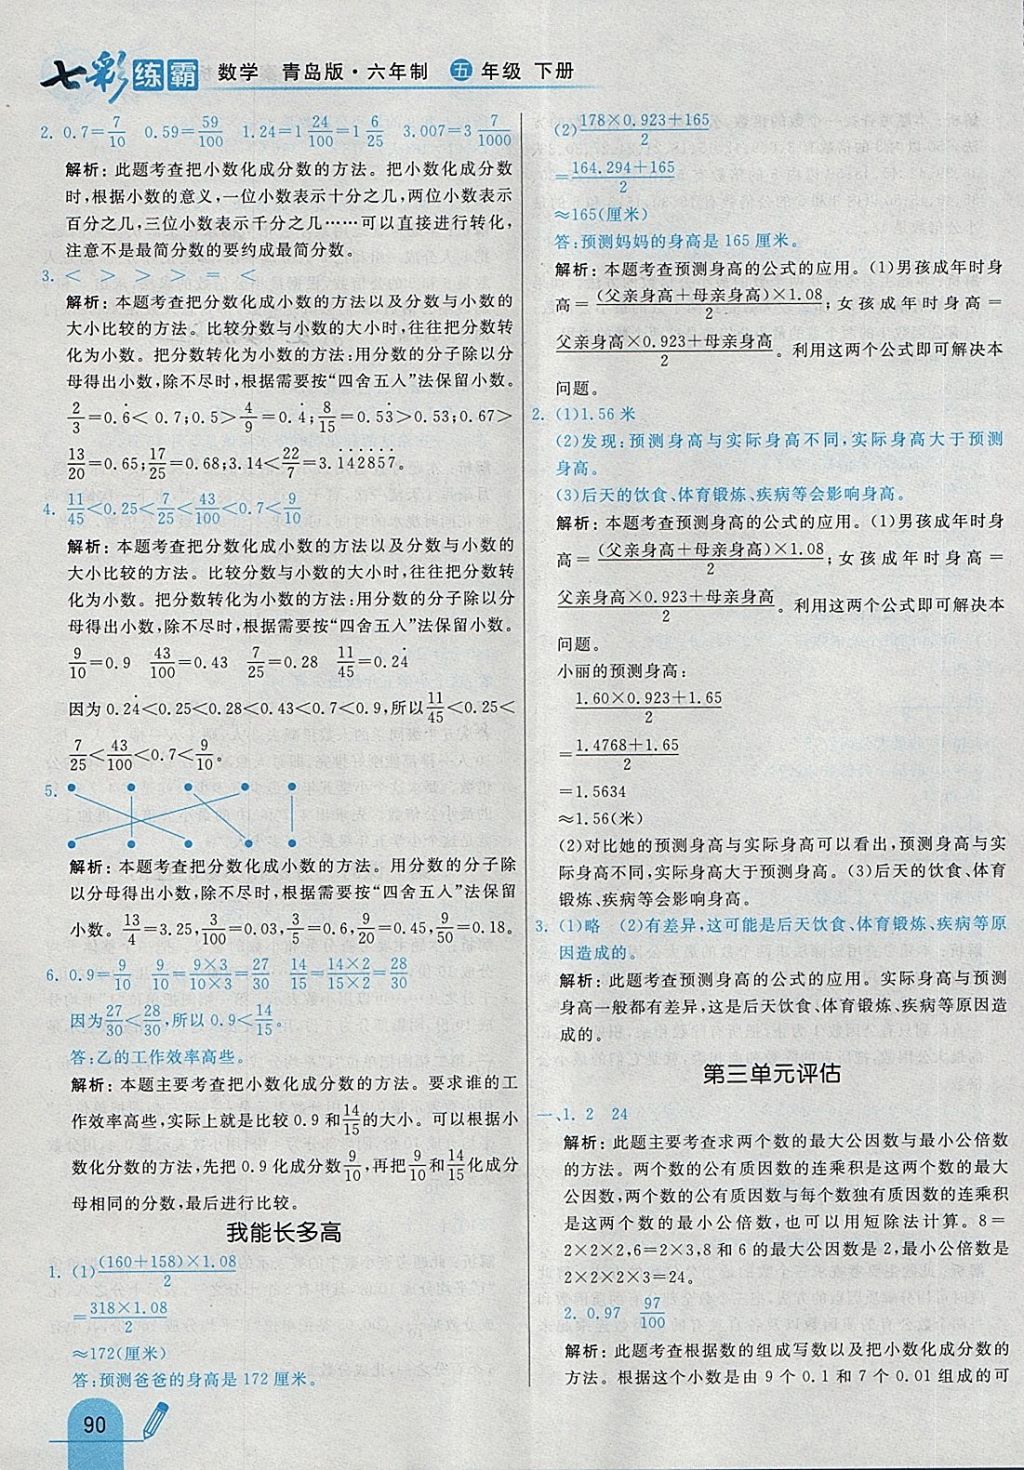 七彩练霸 数学 青岛版·六年制 五年级 下册
2. 0.7=7/10 0.59=59/100 1.24=1 24/100=1 6/25 3.007=3 7/1000
解析:此题考查把小数化成分数的方法。把小数化成分数
时,根据小数的意义,一位小数表示十分之几,两位小数表示
百分之几,三位小数表示千分之几……可以直接进行转化,
注意不是最简分数的要约成最简分数。
3. < > > > = <
解析:本题考查把分数化成小数的方法以及分数与小数的
大小比较的方法。比较分数与小数的大小时,往往把分数转
化为小数。把分数转化为小数的方法:用分数的分子除以分
母得出小数,除不尽时,根据需要按“四舍五入”法保留小数。
2/3=0.6̇<0.7;0.5>4/9=0.4̇;8/15=0.53̇>0.53;0.67>
13/20=0.65;17/25=0.68;3.14<22/7=3.1̇42857̇。
4. 11/45<0.25<7/25<43/100<0.7<9/10
解析:本题考查把分数化成小数的方法以及分数与小数的
大小比较的方法。比较分数与小数的大小时,往往把分数转
化为小数。把分数转化为小数的方法:用分数的分子除以分
母得出小数,除不尽时,根据需要按“四舍五入”法保留小数。
9/10=0.9 43/100=0.43 7/25=0.28 11/45=0.24̇
因为0.24̇<0.25<0.28<0.43<0.7<0.9,所以11/45<0.25<
7/25<43/100<0.7<9/10。
5.
解析:本题考查把分数化成小数的方法。用分数的分子除
以分母得出小数,除不尽时,根据需要按“四舍五入”法保留
小数。13/4=3.25,3/100=0.03,3/5=0.6,9/20=0.45,9/50=0.18。
6. 0.9=9/10 9/10=9×3/10×3=27/30 14/15=14×2/15×2=28/30
因为27/30<28/30,所以0.9<14/15。
答:乙的工作效率高些。
解析:本题主要考查把小数化成分数的方法。要求谁的工
作效率高些,实际上就是比较0.9和14/15的大小。可以根据小
数化分数的方法,先把0.9化成分数9/10,再把9/10和14/15化成分
母相同的分数,最后进行比较。
我能长多高
1. (1)(160+158)×1.08/2
=318×1.08/2
≈172(厘米)
答:预测爸爸的身高是172厘米。
90
(2)178×0.923+165/2
=164.294+165/2
≈165(厘米)
答:预测妈妈的身高是165厘米。
解析:本题考查预测身高的公式的应用。(1)男孩成年时身
高=(父亲身高+母亲身高)×1.08/2;女孩成年时身高=
父亲身高×0.923+母亲身高/2。利用这两个公式即可解决本
问题。
2. (1)1.56米
(2)发现:预测身高与实际身高不同,实际身高大于预测
身高。
(3)后天的饮食、体育锻炼、疾病等会影响身高。
解析:本题考查预测身高的公式的应用。(1)男孩成年时身
高=(父亲身高+母亲身高)×1.08/2;女孩成年时身高=
父亲身高×0.923+母亲身高/2。利用这两个公式即可解决本
问题。
小丽的预测身高:
1.60×0.923+1.65/2
=1.4768+1.65/2
=1.5634
≈1.56(米)
(2)对比她的预测身高与实际身高可以看出,预测身高与实
际身高不同,实际身高大于预测身高。(3)后天的饮食、体育
锻炼、疾病等会影响身高。
3. (1)略 (2)有差异,这可能是后天饮食、体育锻炼、疾病等原
因造成的。
解析:此题考查预测身高的公式的应用。实际身高与预测
身高一般都有差异,这是后天饮食、体育锻炼、疾病等原因造
成的。
第三单元评估
一、1. 2 24
解析:此题主要考查求两个数的最大公因数与最小公倍数
的方法。两个数的公有质因数的连乘积是这两个数的最大
公因数,两个数的公有质因数与每个数独有质因数的连乘积
是这两个数的最小公倍数,也可以用短除法计算。8=
2×2×2,6=2×3,8和6的最大公因数是2,最小公倍数是
2×2×2×3=24。
2. 0.97 97/100
解析:此题考查根据数的组成写数以及把小数化成分数的
方法。根据这个小数是由9个0.1和7个0.01组成的可